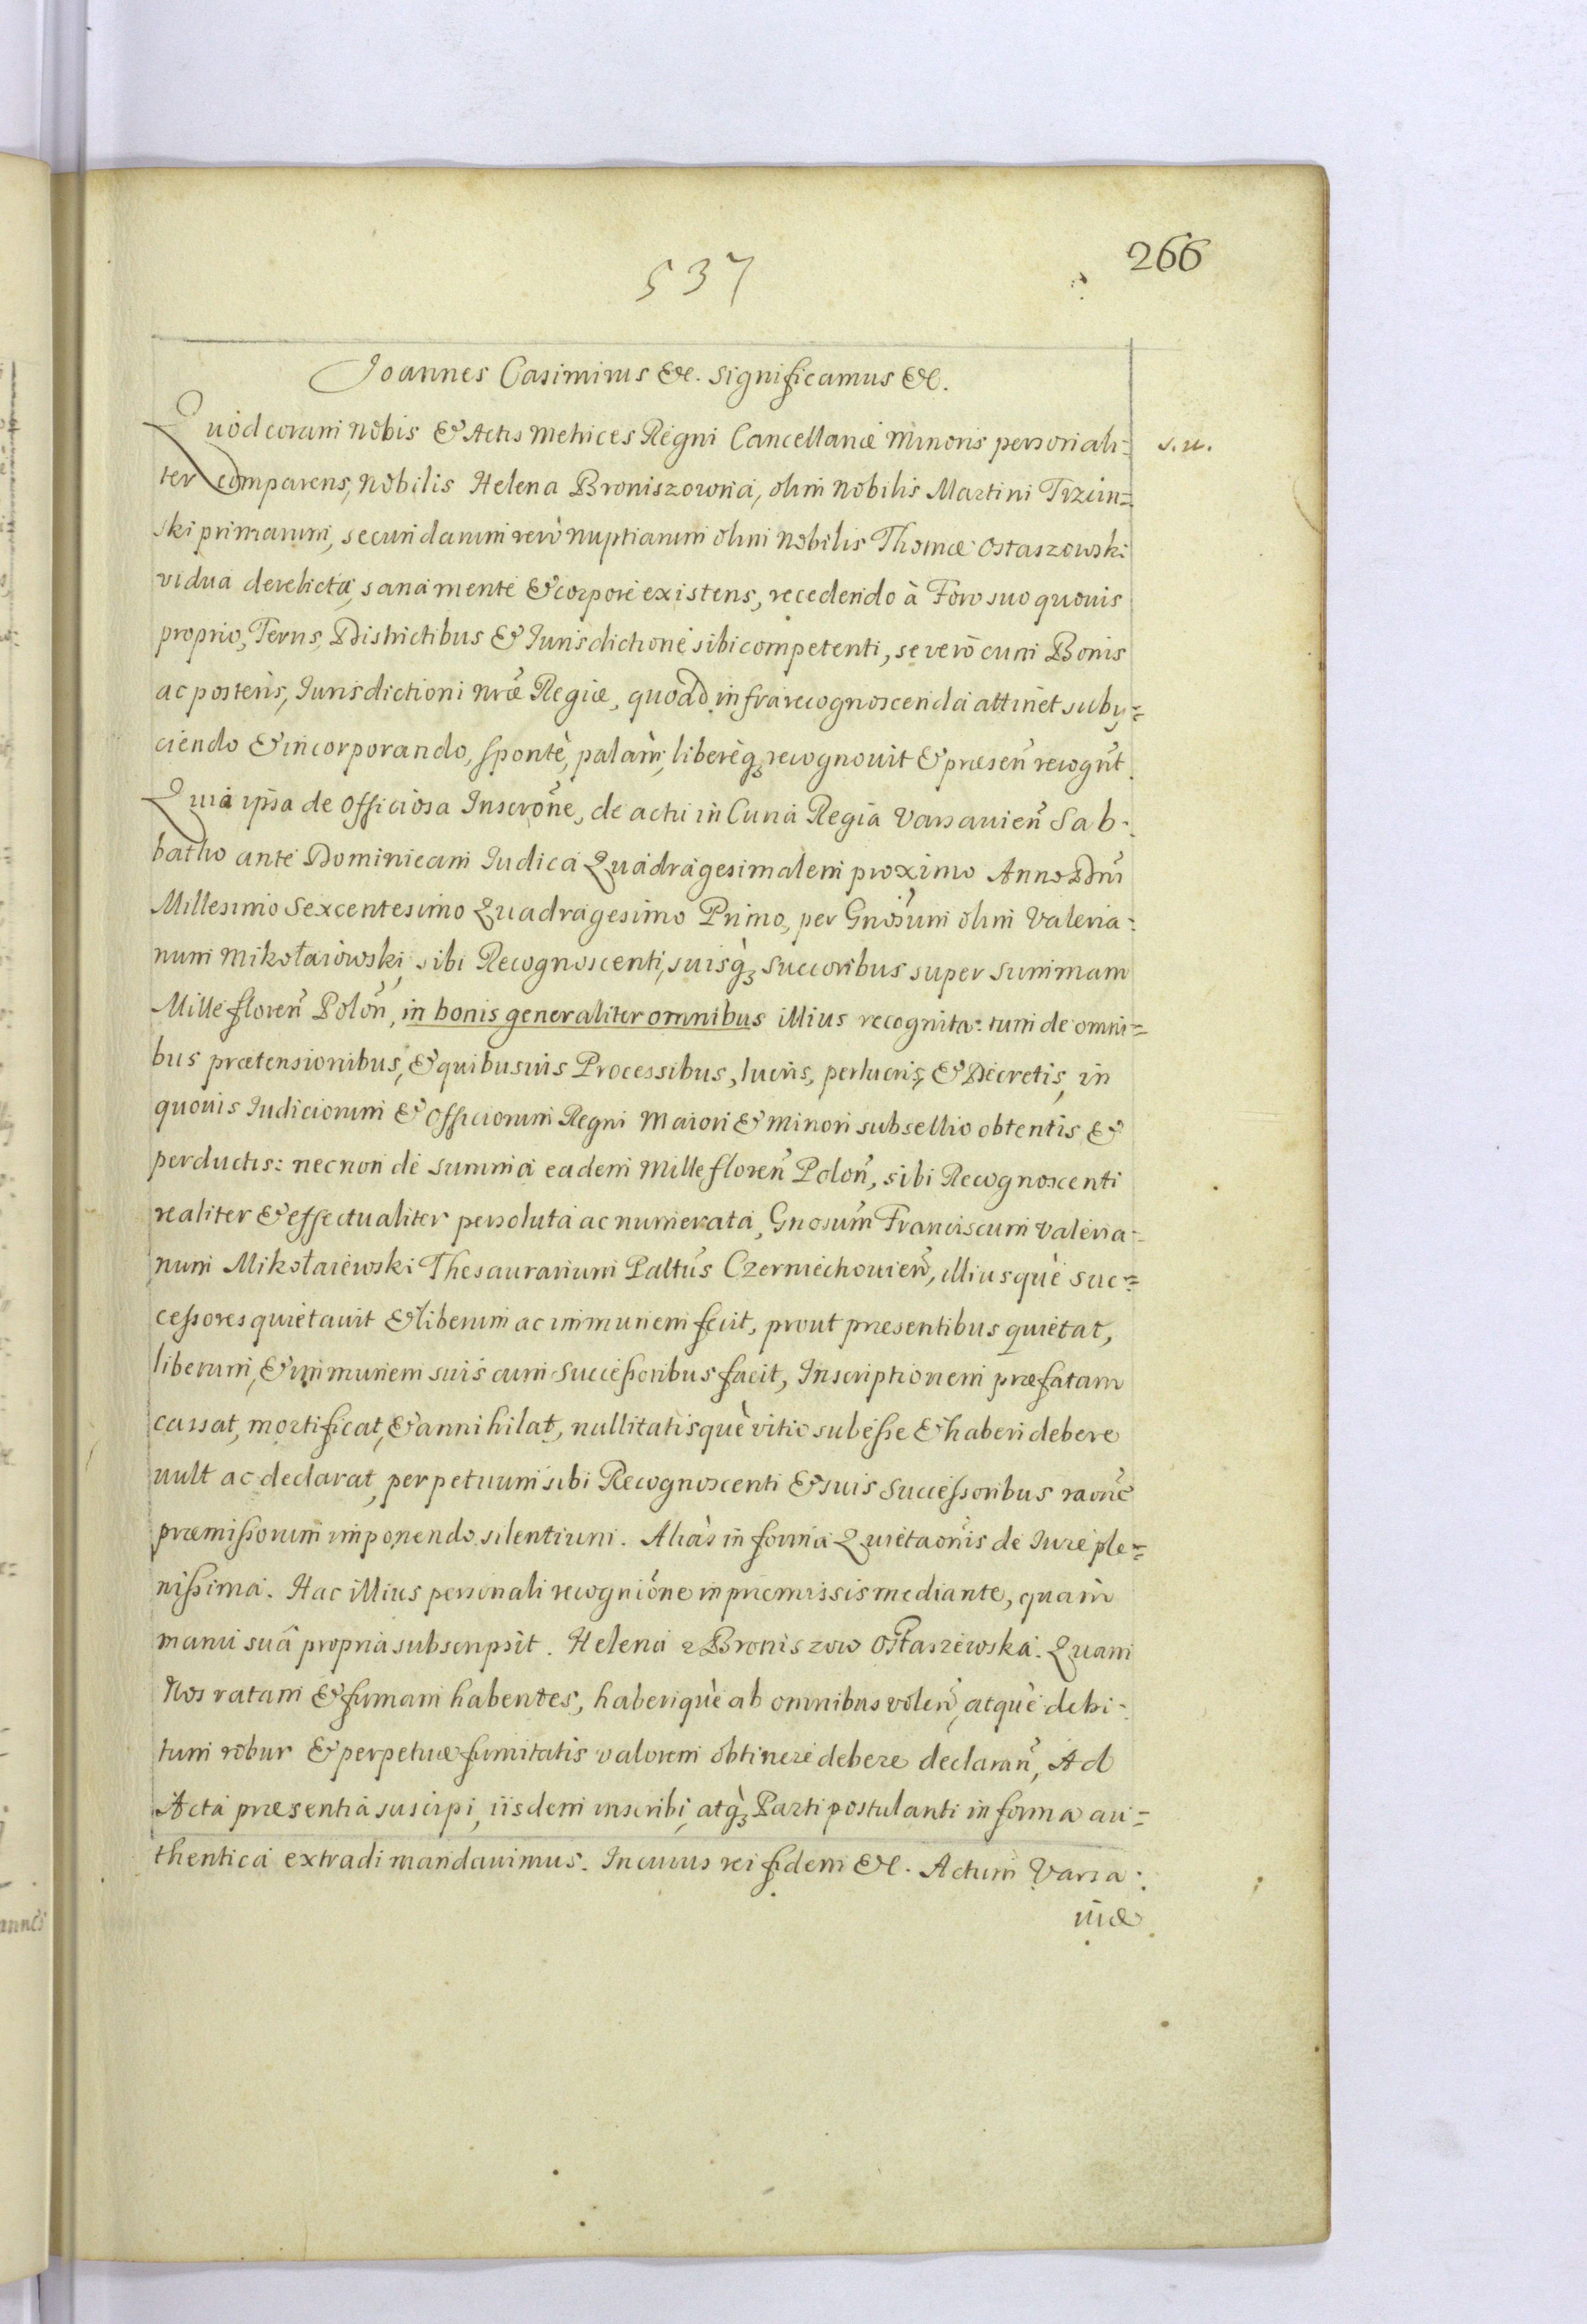 266
537
Joannes Casimirus &c. significamus &c.
Quòd coram Nobis & Actis Metrices Regni Cancellariæ Minoris personali-
s. u.
ter comparens, Nobilis Helena Broniszowna, olim Nobilis Martini Trzcin=
ski primarum, secundarum verò nuptiarum olim Nobilis Thomæ Ostaszewski
vidua derelicta, sana mente & corpore existens, recedendo à Foro suo quouis
proprio, Terris, Districtibus & Iurisdictione sibi competenti, se verò cum Bonis
ac posteris, Iurisdictioni nræ Regiæ, quoad infra recognoscenda attinet suby=
ciendo & incorporando, sponte, palàm, liberèq3 recognouit & præsen recognt.
Quia ipsa de Officiosa Inscrone, de actu in Curia Regia Varsauien Sab-
batho ante Dominicam Iudica Quadragesimalem proximo Anno Dni
Millesimo Sexcentesimo Quadragesimo Primo, per Gnosum olim Valeria-
num Mikołaiowski sibi Recognoscenti, suisq3 succoribus super summam
Mille floren Polon, in bonis generaliter omnibus illius recognita: tum de omni=
bus prætensionibus, & quibusuis Processibus, lucris, perlucris, & Decretis, in
quouis Iudiciorum & Officiorum Regni Maiori & Minori subsellio obtentis &
perductis: necnon de summa eadem Mille floren Polon, sibi Recognoscenti
realiter & effectualiter persoluta ac numerata, Gnosum Franciscum Valeria-
num Mikołaiewski Thesaurarium Paltus Czerniechouien, illiusquè suc=
cessores quietauit & liberum ac immunem fecit, prout præsentibus quietat,
liberum, & immunem suis cum Successoribus facit, Inscriptionem præfatam
cassat, mortificat, & annihilat, nullitatisquè vitio subesse & haberi debere
uult ac declarat, perpetuum sibi Recognoscenti & suis Successoribus raone
præmissorum imponendo silentium. Aliàs in forma Quietaonis de Iure ple=
nissima. Hac illius personali recognione in præmissis mediante, quam
manu suâ propria subscripsit. Helena z Broniszow Ostaszewska. Quam
Nos ratam & firmam habentes, haberiquè ab omnibus volen, atquè debi-
tum robur & perpetuæ firmitatis valorem obtinere debere declaran, Ad
Acta præsentia suscipi, iisdem inscribi, atq3 Parti postulanti in forma au=
thentica extradi mandauimus. In cuius rei fidem &c. Actum Varsa-
uiæ